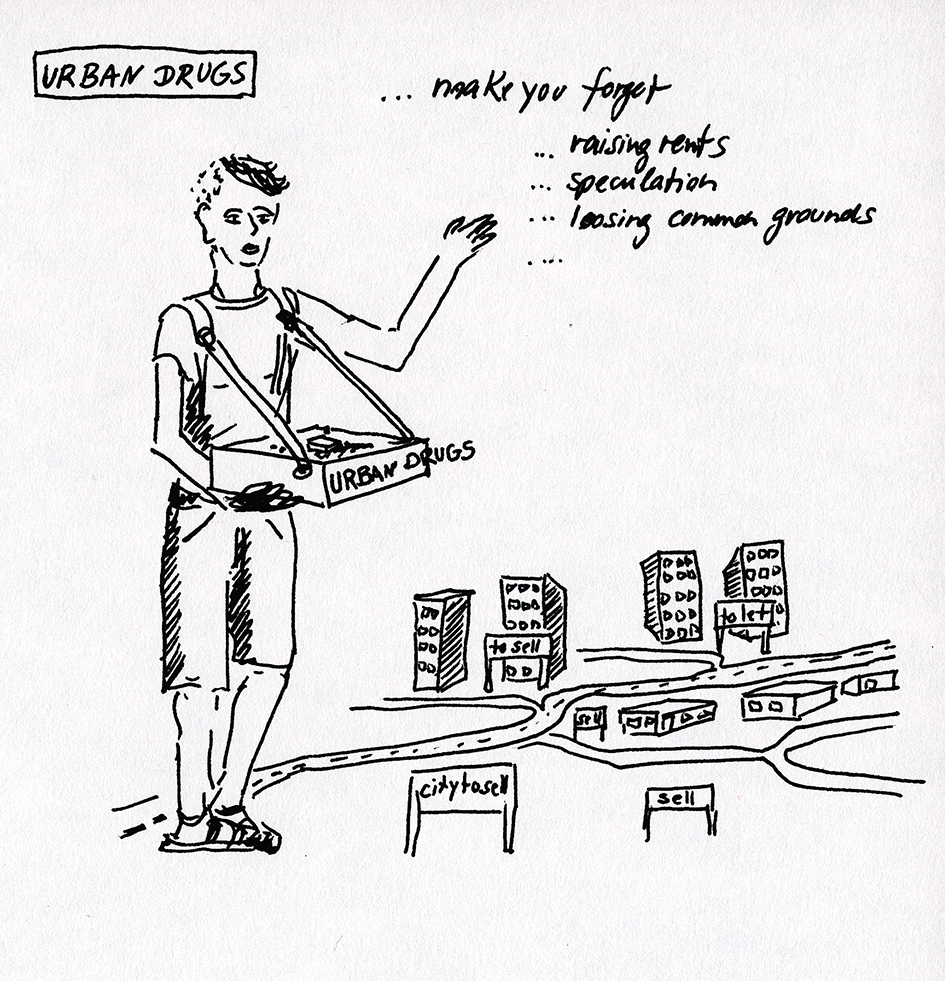 URBAN DRUGS
... make you forget
... raising rents
... speculation
... loosing common grounds
. ...
URBAN DRUGS
to let
to sell
sell
city to sell
sell